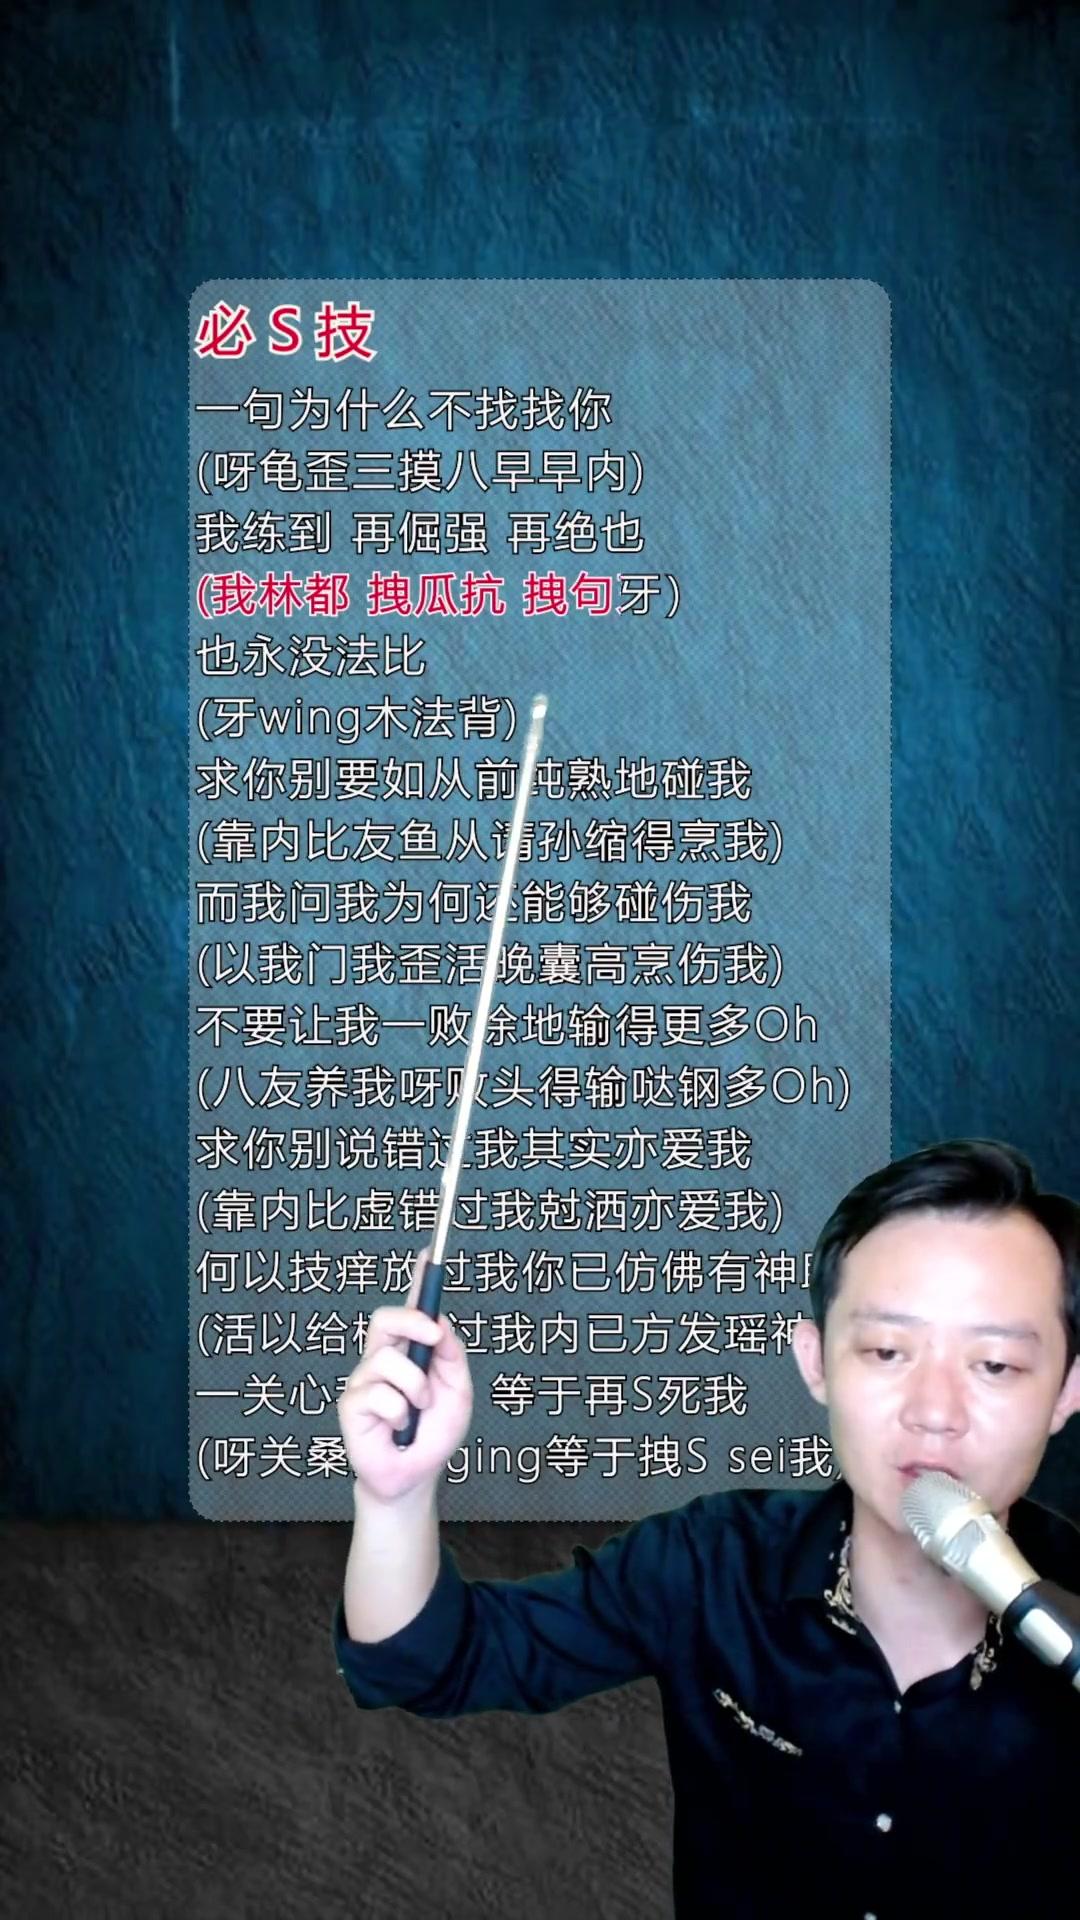 必S技
一句为什么不找找你
(呀龟歪三摸八早早内)
我练到 再倔强 再绝也
(我林都 拽瓜抗 拽句牙)
也永没法比
(牙wing木法背)
求你别要如从前纯熟地碰我
(靠内比友鱼从请孙缩得烹我)
而我问我为何还能够碰伤我
(以我门我歪活晚囊高烹伤我)
不要让我一败涂地输得更多Oh
(八友养我呀败头得输哒钢多Oh)
求你别说错过我其实亦爱我
(靠内比虚错过我尅洒亦爱我)
何以技痒放过我你已仿佛有神
(活以给 过我内已方发瑶神
一关心 等于再S死我
(呀关桑 ging等于拽S sei我)